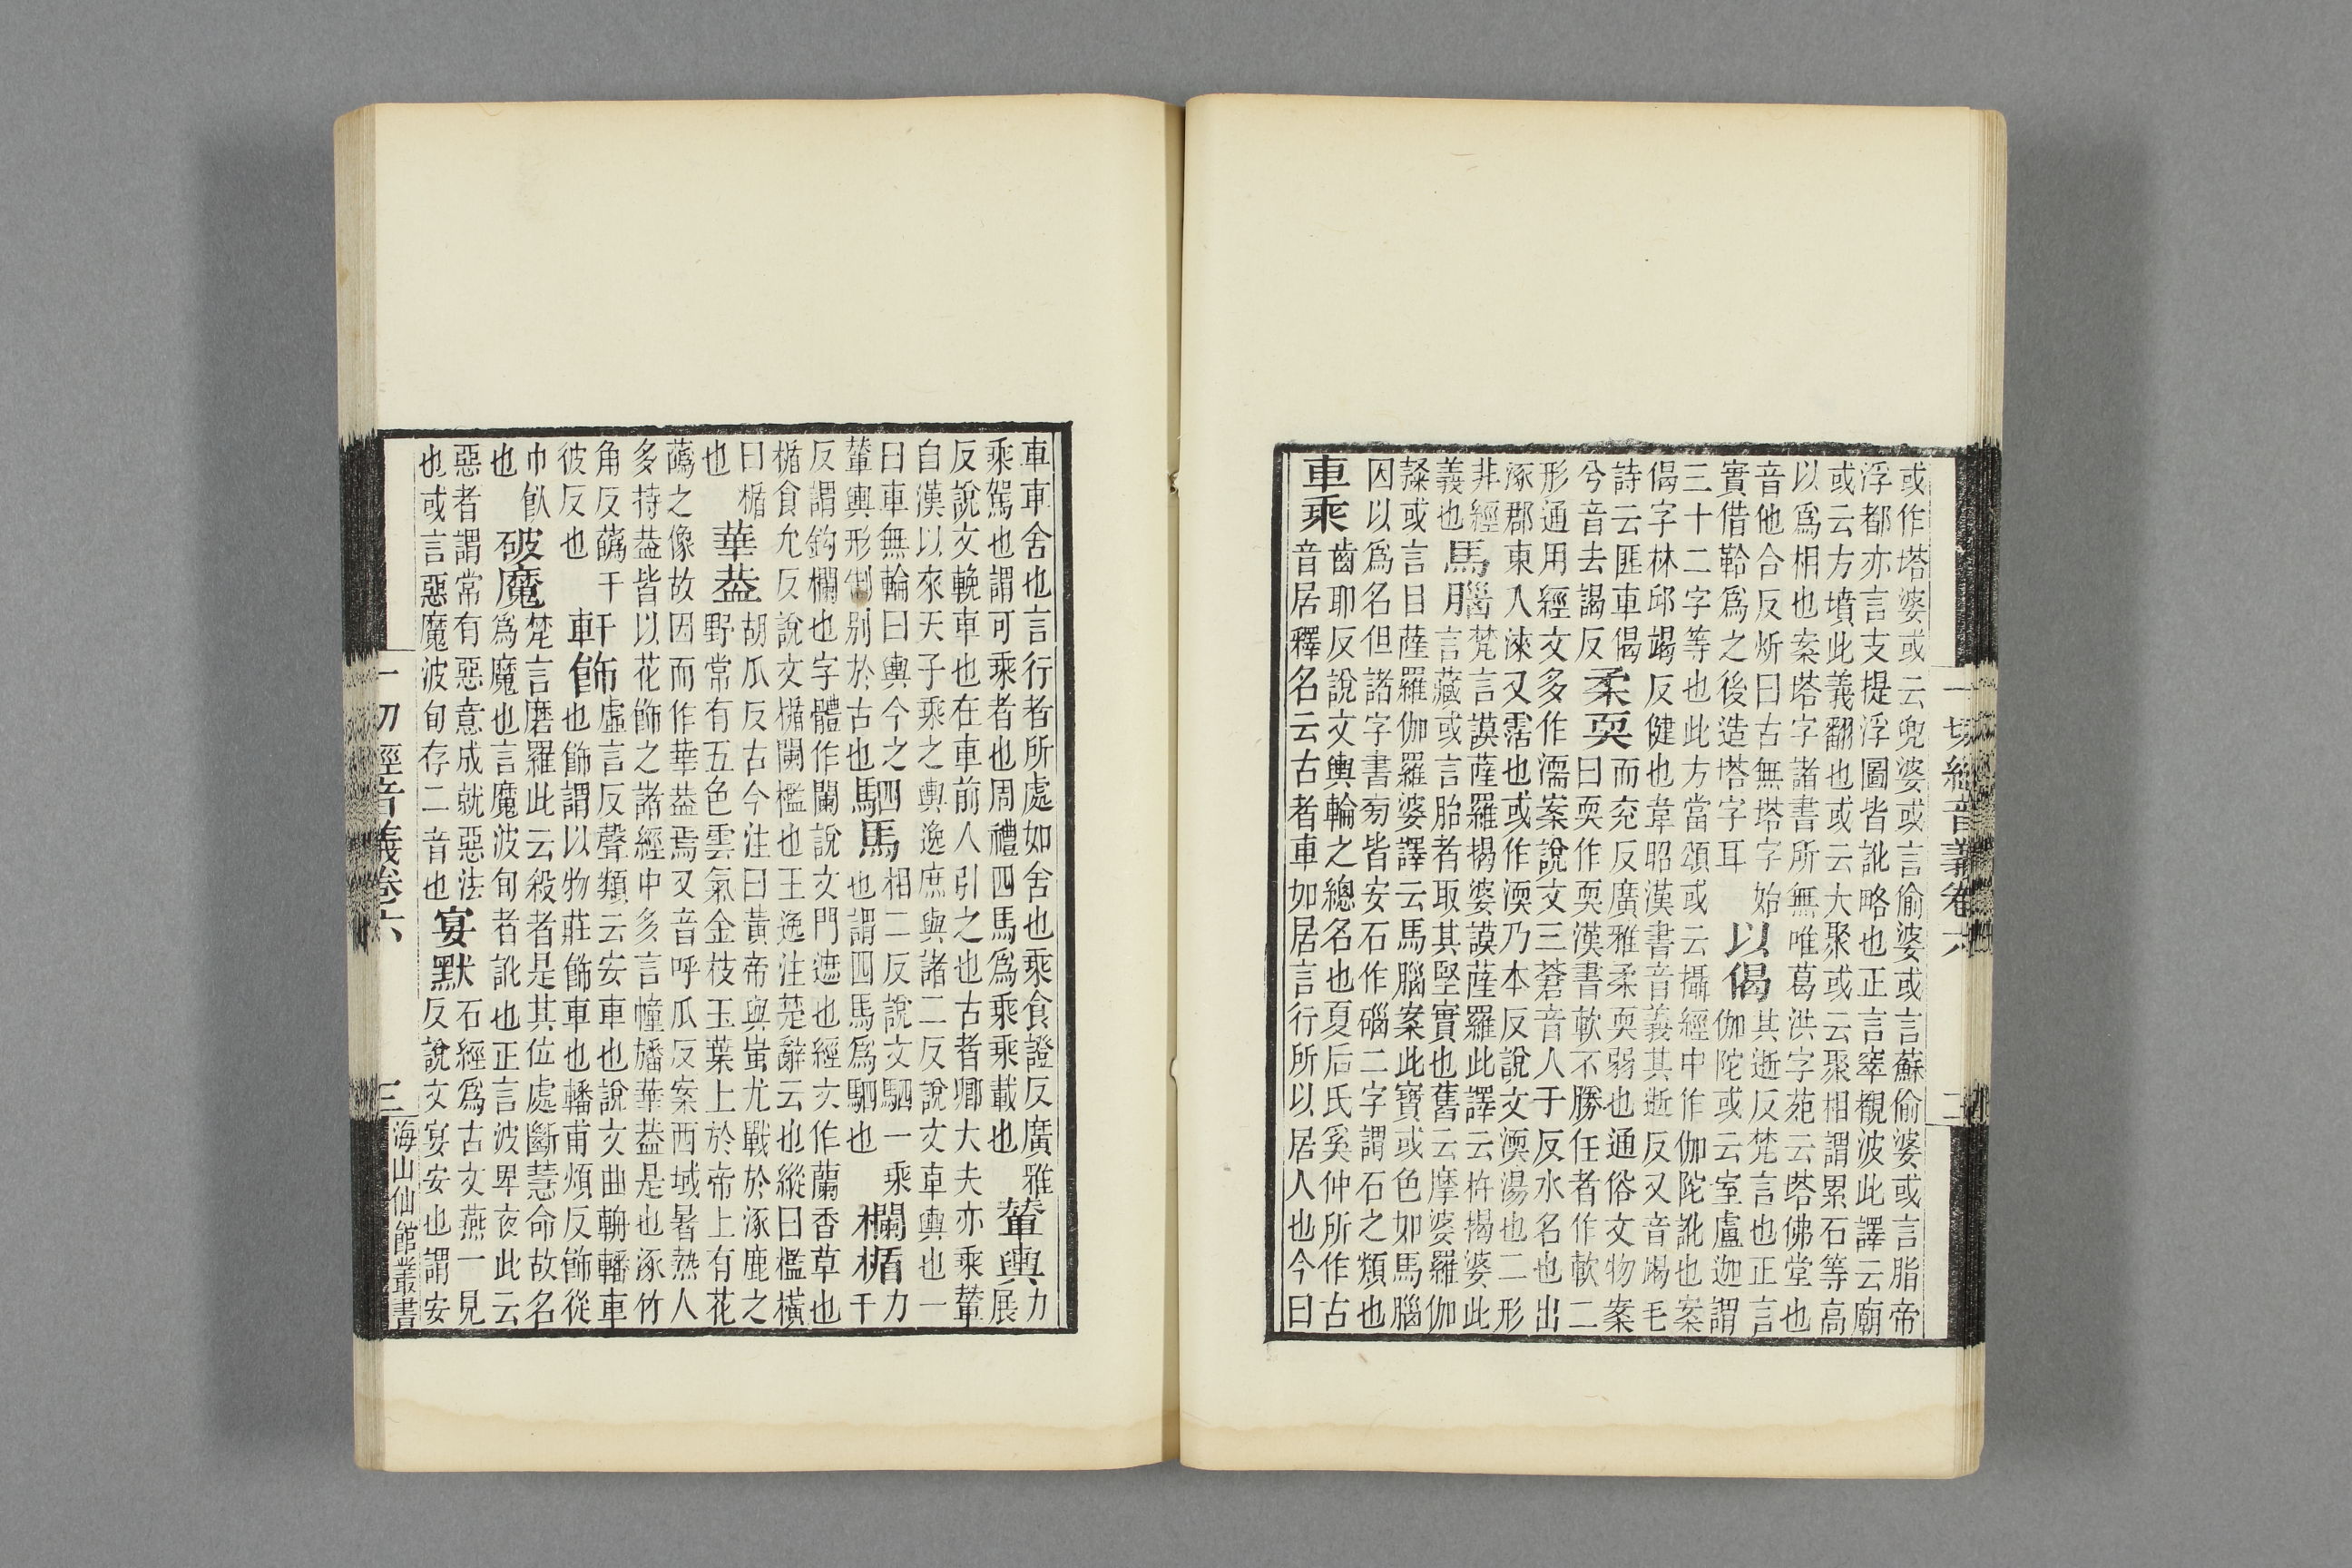 一切經音義卷六 二
或作塔婆或云兜婆或言偷婆或言蘇偷婆或言脂帝
浮都亦言支提浮圖皆訛略也正言窣覩波此譯云廟
或云方墳此義翻也或云大聚或云聚相謂累石等高
以爲相也案塔字諸書所無唯葛洪字苑云塔佛堂也
音他合反炘曰古無塔字始
實借鞈爲之後造塔字耳
以偈
其逝反梵言也正言
伽陀或云室盧迦謂
三十二字等也此方當頌或云攝經中作伽陀訛也案
偈字林邱竭反健也韋昭漢書音義其逝反又音竭毛
詩云匪車偈
兮音去謁反
柔耎
而兖反廣雅柔耎弱也通俗文物案
曰耎作耎漢書軟不勝任者作軟二
形通用經文多作濡案說文三蒼音人于反水名也出
涿郡東入淶又霑也或作渜乃本反說文渜湯也二形
非經
義也
馬腦
梵言謨薩羅揭婆謨薩羅此譯云杵揭婆此
言藏或言胎者取其堅實也舊云摩婆羅伽
或言目薩羅伽羅婆譯云馬腦案此寶或色如馬腦
因以爲名但諸字書旁皆安石作碯二字謂石之類也
車乘
齒耶反說文輿輪之總名也夏后氏奚仲所作古
音居釋名云古者車如居言行所以居人也今曰
車車舍也言行者所處如舍也乘食證反廣雅
乘駕也謂可乘者也周禮四馬爲乘乘載也
輦輿
力展
反說文輓車也在車前人引之也古者卿大夫亦乘輦
自漢以來天子乘之輿逸庶與諸二反說文車輿也一
曰車無輪曰輿今之
輦輿形制别於古也
駟馬
相二反說文駟一乘
也謂四馬爲駟也
欄楯
力干
反謂鈎欄也字體作闌說文門遮也經文作蘭香草也
楯食允反說文楯闌檻也王逸注楚辭云也縱曰檻橫
曰楯
也
華葢
胡瓜反古今注曰黃帝與蚩尤戰於涿鹿之
野常有五色雲氣金枝玉葉上於帝上有花
蘤之像故因而作華葢焉又音呼瓜反案西域暑熱人
多持葢皆以花飾之諸經中多言幢旛華葢是也涿竹
角反蘤干
彼反也
軒飾
虛言反聲類云安車也說文曲輈轓車
也飾謂以物莊飾車也轓甫煩反飾從
巾飤
也
破魔
梵言磨羅此云殺者是其位處斷慧命故名
爲魔也言魔波旬者訛也正言波卑夜此云
惡者謂常有惡意成就惡法
也或言惡魔波旬存二音也
宴默
石經爲古文燕一見
反說文宴安也謂安
一切經音義卷六 三 海山仙館叢書